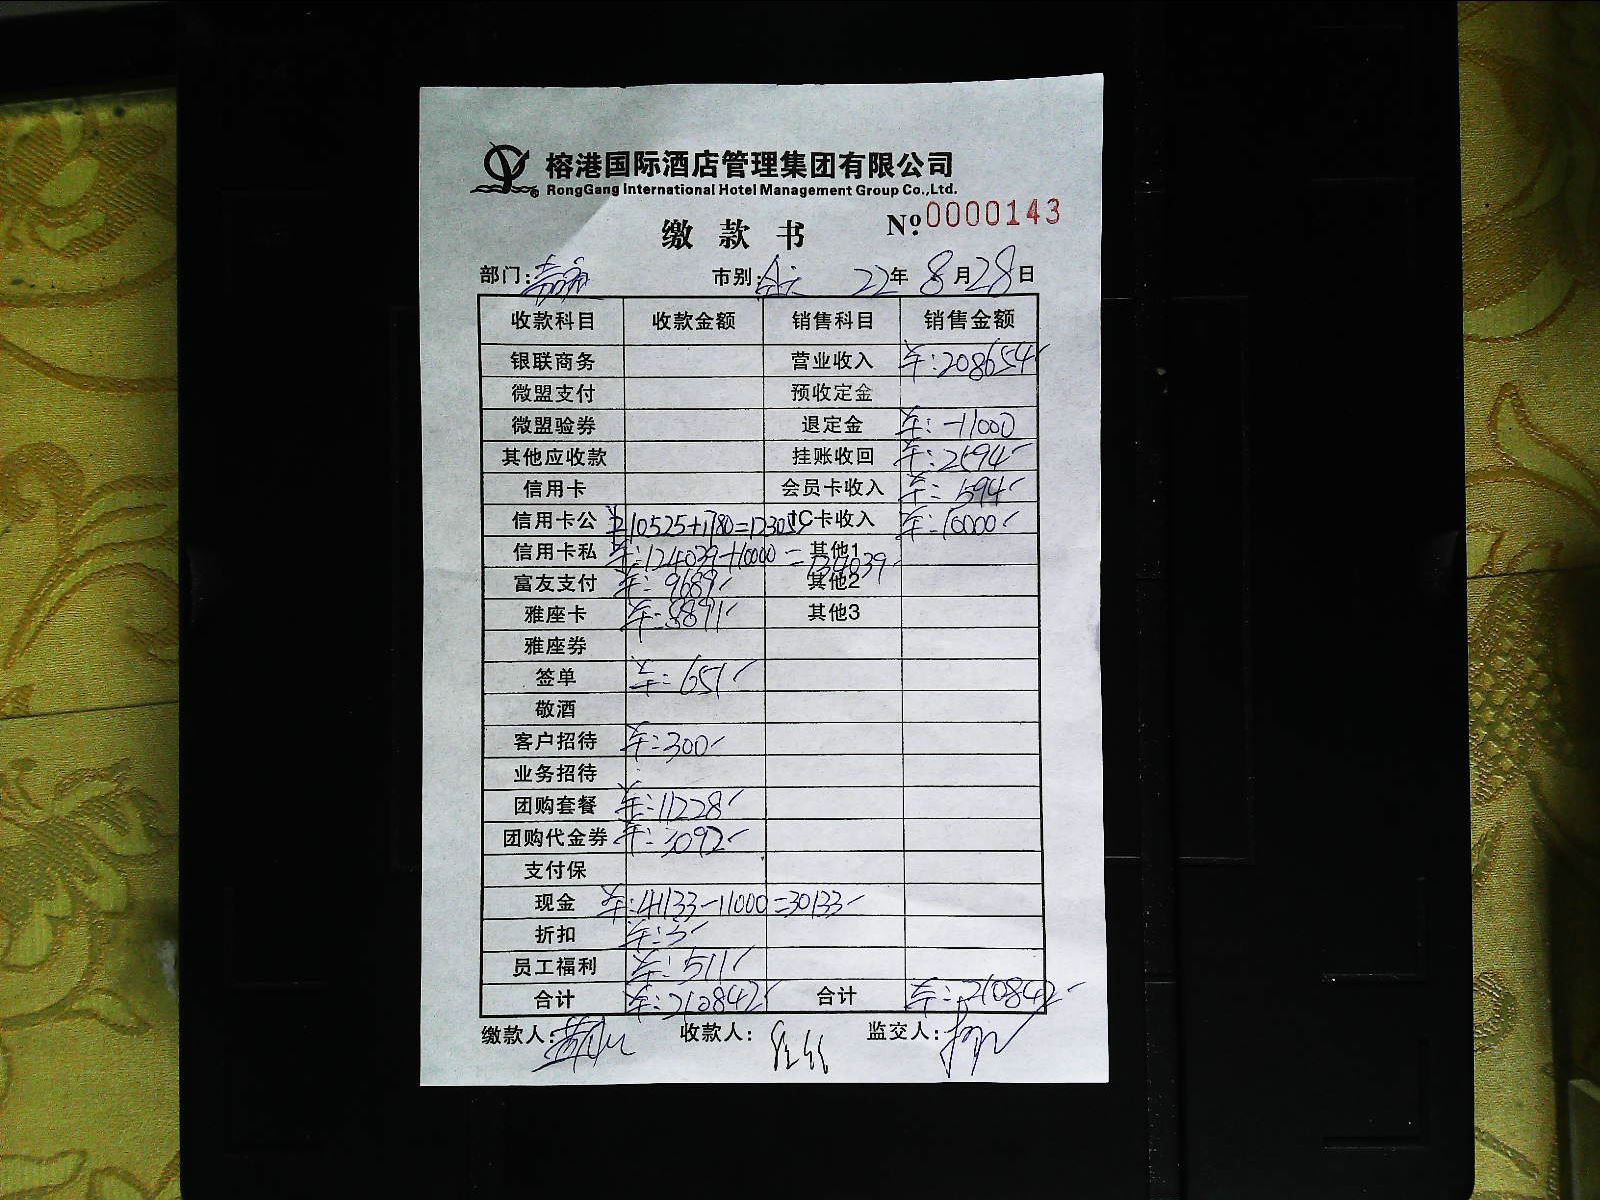 榕港国际酒店管理集团有限公司
RongGang International Hotel Management Group Co.,Ltd.
缴款书 Nº 0000143
部门: 市别: 22年 8月28日
收款科目 收款金额 销售科目 销售金额
银联商务 营业收入 ¥:208654
微盟支付 预收定金
微盟验券 退定金 ¥:-11000
其他应收款 挂账收回 ¥:2594
信用卡 会员卡收入 ¥:594
信用卡公 ¥10525+1780=12305 IC卡收入 ¥:10000
信用卡私 ¥:124039+10000=134039 其他1
富友支付 ¥:9689 其他2
雅座卡 ¥:8891 其他3
雅座券
签单 ¥:651
敬酒
客户招待 ¥:300
业务招待
团购套餐 ¥:11228
团购代金券 ¥:3092
支付保
现金 ¥:41133-11000=30133
折扣 ¥:3
员工福利 ¥:511
合计 ¥:210842 合计 ¥:210842
缴款人: 收款人: 监交人: